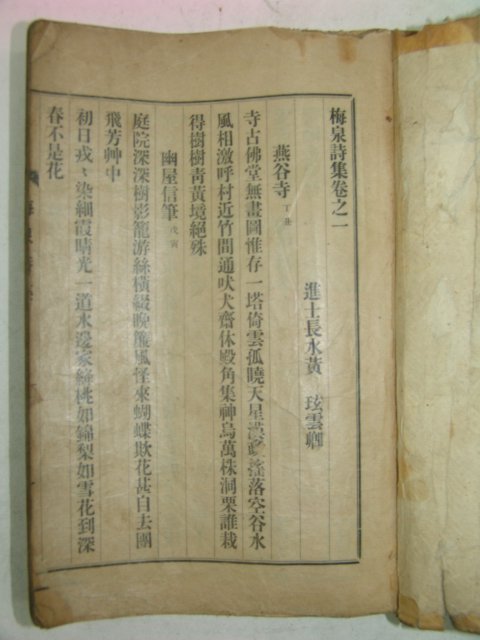 梅泉詩集卷之一
進士長水黃　玹雲卿
燕谷寺 丁丑
寺古佛堂無畫圖惟存一塔倚雲孤曉天星漢搖落空谷水
風相激呼村近竹間通吠犬齋休殿角集神烏萬株洞栗誰栽
得樹樹靑黃境絕殊
幽屋信筆 戊寅
庭院深深樹影籠游絲橫綴晚簾風怪來蝴蝶欺花甚自去團
飛芳艸中
初日戎〻染細霞晴光一道水邊家緋桃如錦梨如雪花到深
春不是花